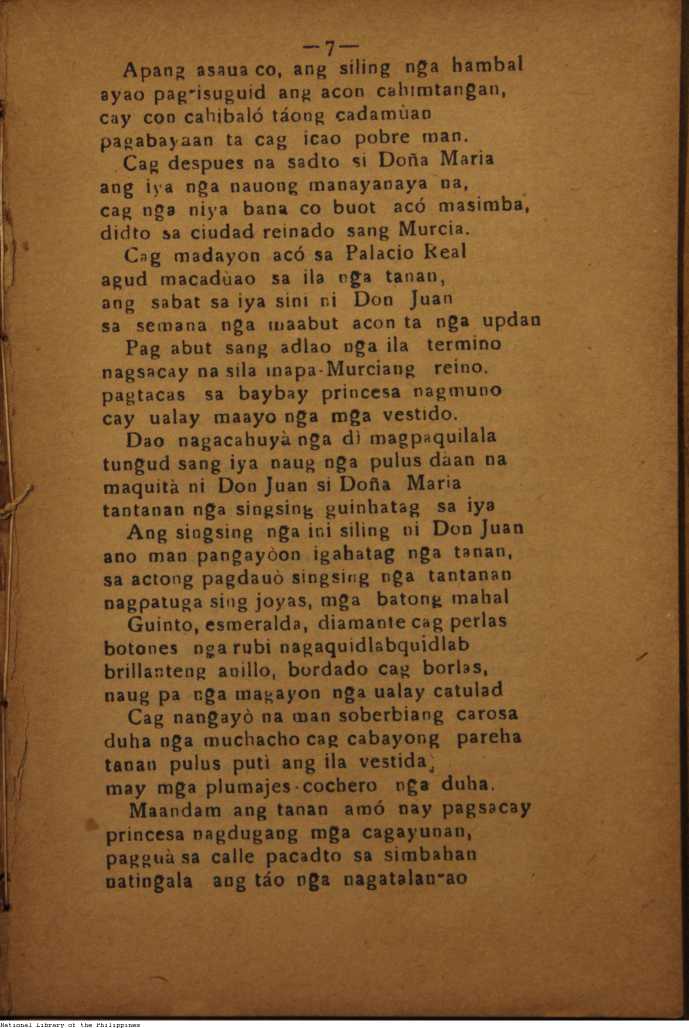 —7—
Apang asaua co, ang siling nga hambal
ayao pag-isuguid ang acon cahimtangan,
cay con cahibaló táong cadamùan
pagabayaan ta cag icao pobre man.
Cag despues na sadto si Doña Maria
ang iya nga nauong manayanaya na,
cag nga niya bana co buot acó masimba,
didto sa ciudad reinado sang Murcia.
Cag madayon acó sa Palacio Real
agud macadùao sa ila nga tanan,
ang sabat sa iya sini ni Don Juan
sa semana nga maabut acon ta nga updan
Pag abut sang adlao nga ila termino
nagsacay na sila mapa-Murciang reino.
pagtacas sa baybay princesa nagmuno
cay ualay maayo nga mga vestido.
Dao nagacahuyà nga dì magpaquilala
tungud sang iya naug nga pulus dàan na
maquità ni Don Juan si Doña Maria
tantanan nga singsing guinhatag sa iya
Ang singsing nga ini siling ni Don Juan
ano man pangayòon igahatag nga tanan,
sa actong pagdauò singsing nga tantanan
nagpatuga sing joyas, mga batong mahal
Guinto, esmeralda, diamante cag perlas
botones nga rubi nagaquidlabquidlab
brillanteng anillo, bordado cag borlas,
naug pa nga magayon nga ualay catulad
Cag nangayò na man soberbiang carosa
duha nga muchacho cag cabayong pareha
tanan pulus puti ang ila vestida;
may mga plumajes-cochero nga duha.
Maandam ang tanan amó nay pagsacay
princesa nagdugang mga cagayunan,
pagguà sa calle pacadto sa simbahan
natingala ang táo nga nagatalan-ao
National Library of the Philippines